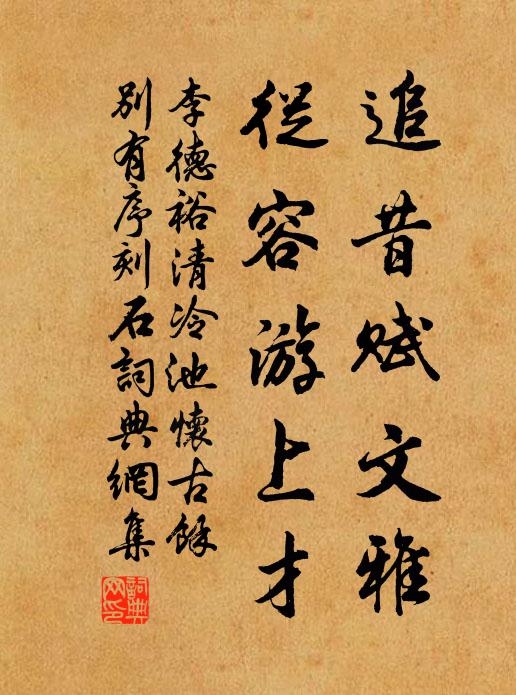 追昔賦文雅
從容游上才
李德裕清冷池懷古餘
別有序刻石詞典網集
詞典網印